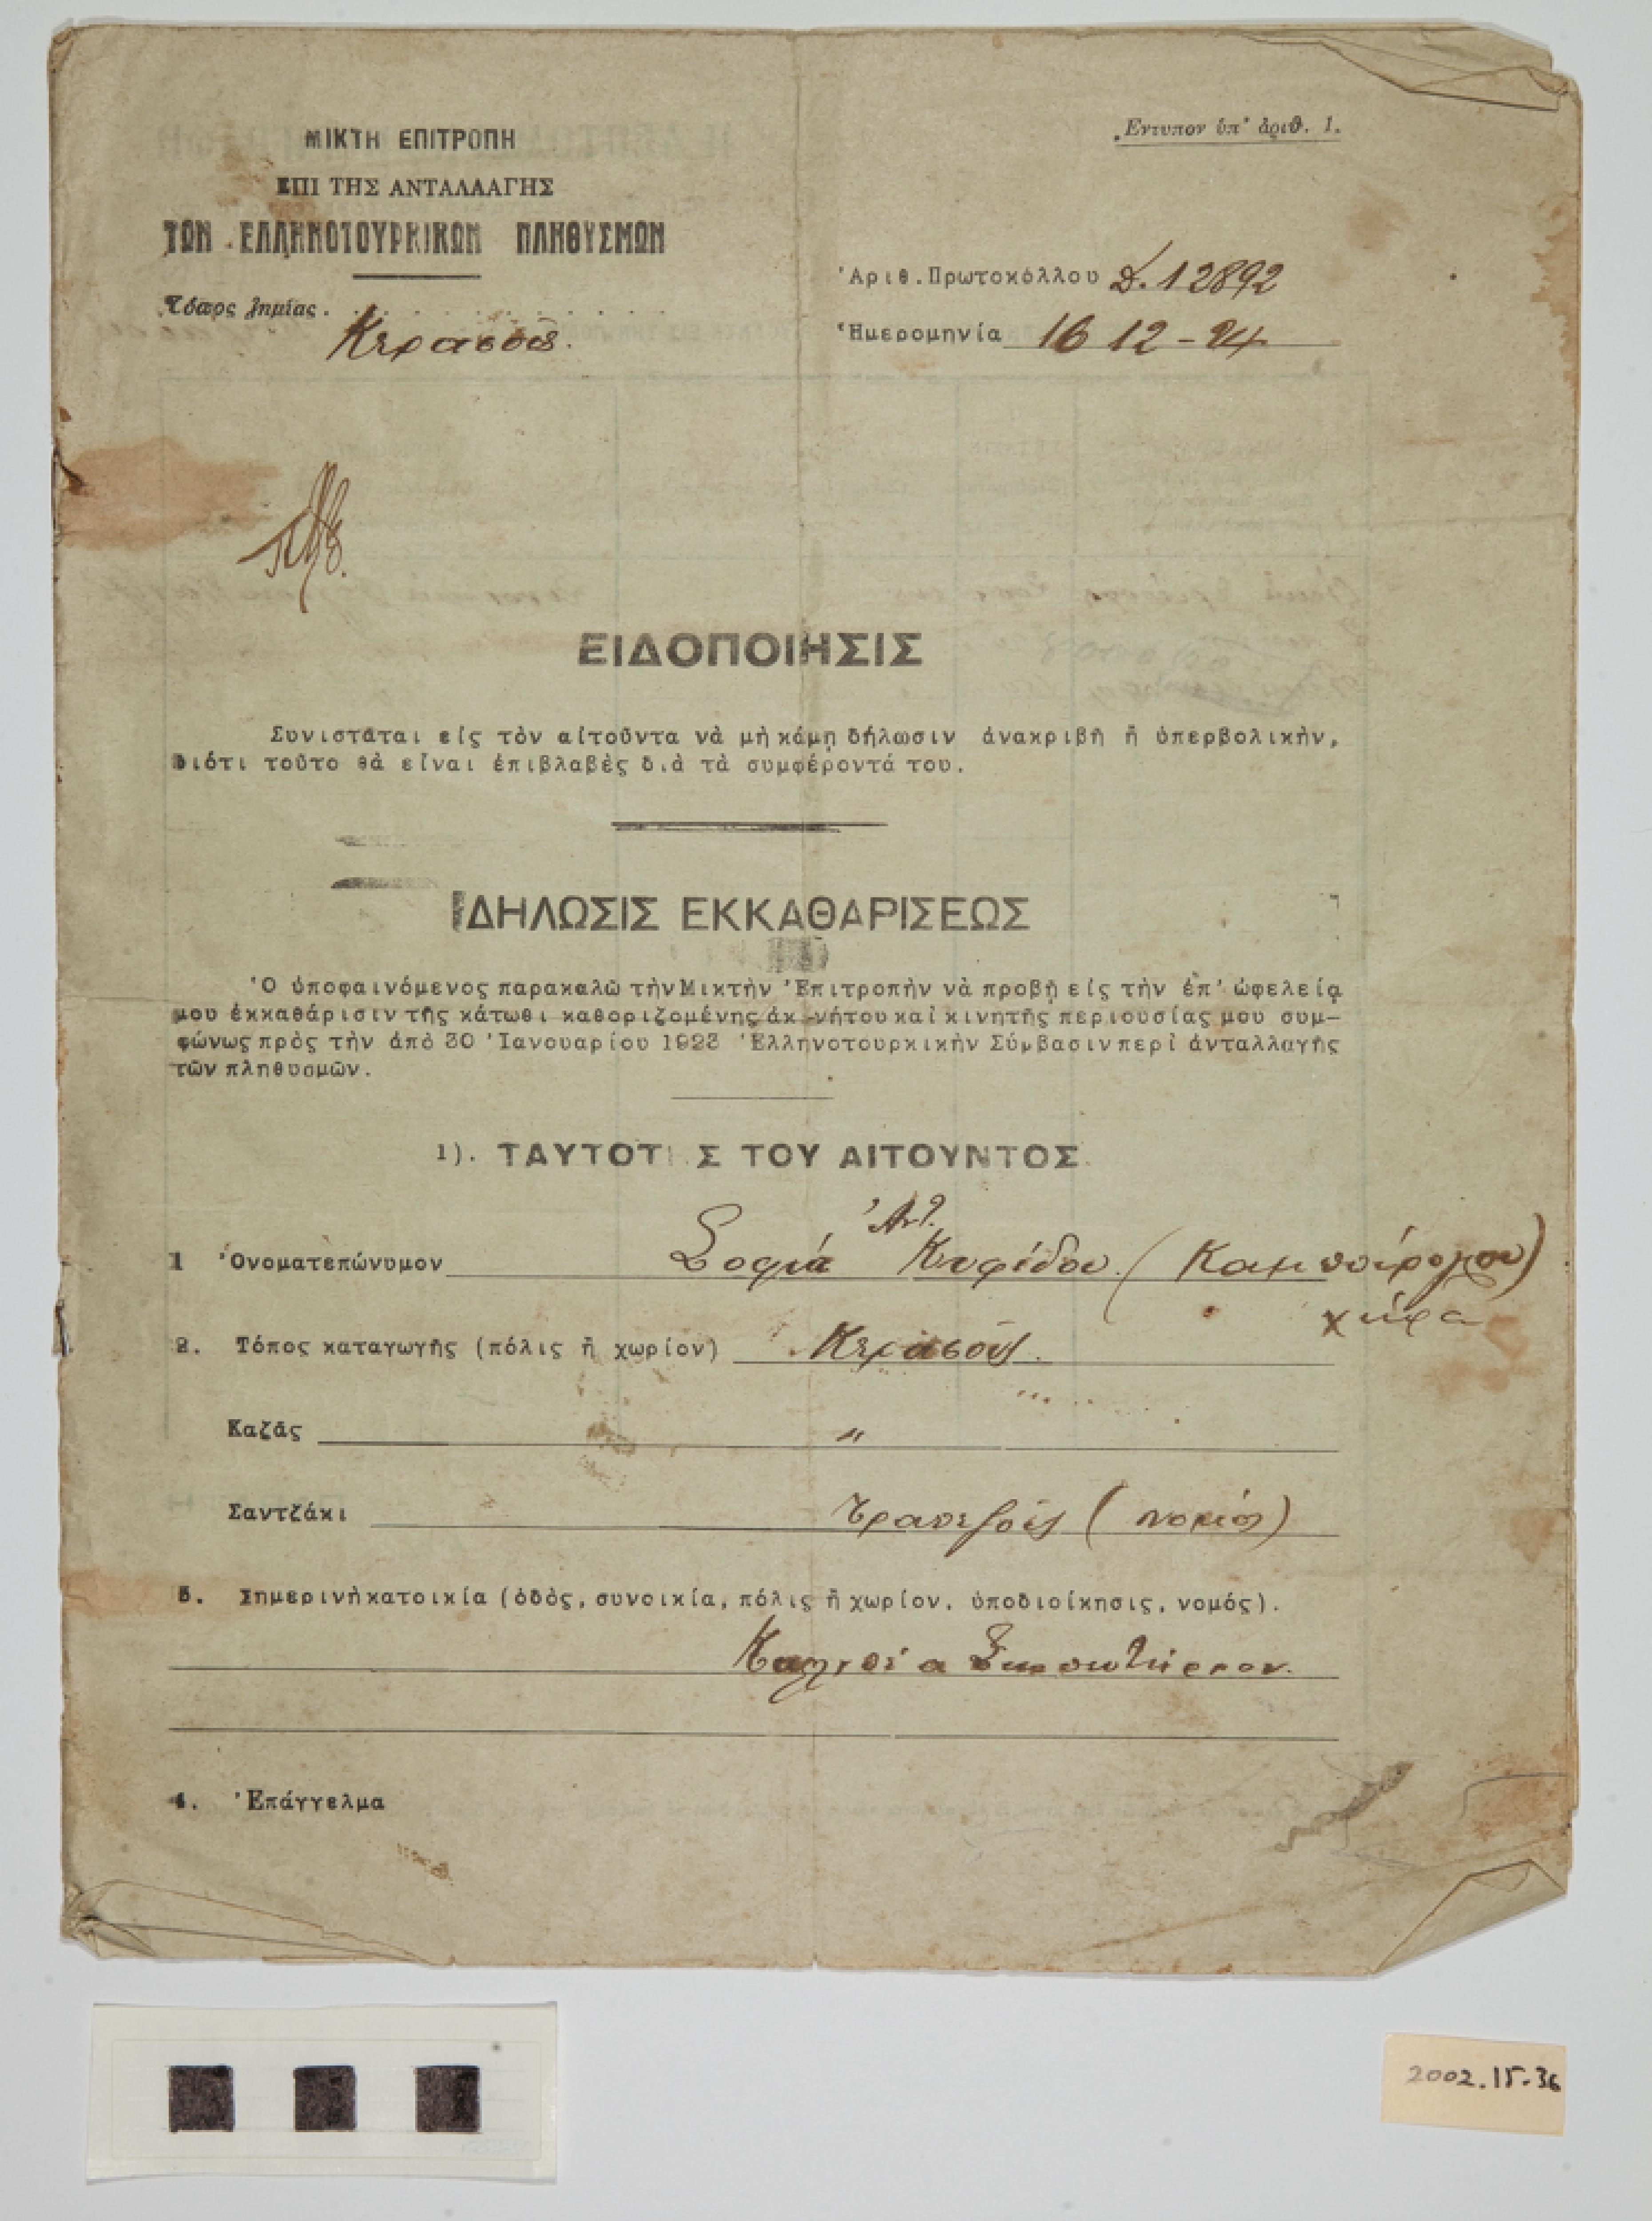 ΜΙΚΤΗ ΕΠΙΤΡΟΠΗ
ΕΠΙ ΤΗΣ ΑΝΤΑΛΛΑΓΗΣ
ΤΩΝ ΕΛΛΗΝΟΤΟΥΡΚΙΚΩΝ ΠΛΗΘΥΣΜΩΝ
Τόπος ζημίας.
Κερασοῦς.
Ἔντυπον ὑπ' ἀριθ. 1.
Ἀριθ. Πρωτοκόλλου Δ. 12892
Ἡμερομηνία 16 12-24
ΕΙΔΟΠΟΙΗΣΙΣ
Συνιστᾶται εἰς τὸν αἰτοῦντα νὰ μὴ κάμῃ δήλωσιν ἀνακριβῆ ἢ ὑπερβολικὴν,
διότι τοῦτο θὰ εἶναι ἐπιβλαβὲς διὰ τὰ συμφέροντά του.
ΔΗΛΩΣΙΣ ΕΚΚΑΘΑΡΙΣΕΩΣ
Ὁ ὑποφαινόμενος παρακαλῶ τὴν Μικτὴν Ἐπιτροπὴν νὰ προβῇ εἰς τὴν ἐπ' ὠφελείᾳ
μου ἐκκαθάρισιν τῆς κάτωθι καθοριζομένης ἀκ νήτου καὶ κινητῆς περιουσίας μου συμ-
φώνως πρὸς τὴν ἀπὸ 30 Ἰανουαρίου 1923 Ἑλληνοτουρκικὴν Σύμβασιν περὶ ἀνταλλαγῆς
τῶν πληθυσμῶν.
1). ΤΑΥΤΟΤ Σ ΤΟΥ ΑΙΤΟΥΝΤΟΣ
1 Ὀνοματεπώνυμον Σοφία
χήρα
2. Τόπος καταγωγῆς (πόλις ἢ χωρίον) Κερασοῦς.
Καζᾶς "
Σαντζάκι Τραπεζοῦς (νομός)
3. Σημερινὴ κατοικία (ὁδὸς, συνοικία, πόλις ἢ χωρίον, ὑποδιοίκησις, νομός).
4. Ἐπάγγελμα
2002.15-36